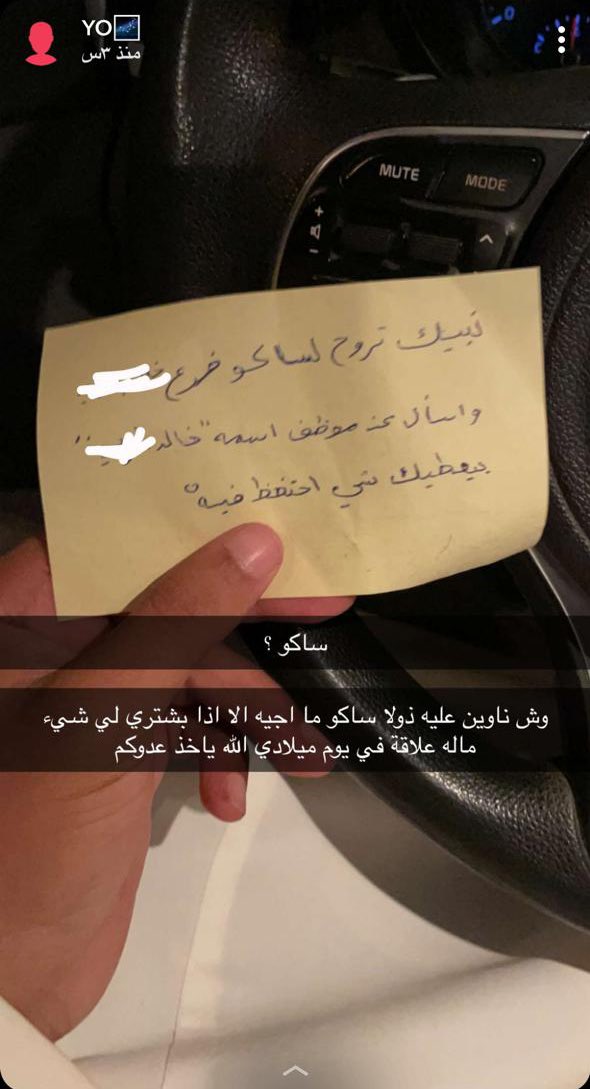 YO
منذ ٣س
MUTE
MODE
نبيك تروح لساكو فرع
واسأل عن موظف اسمه "خالد "
بيعطيك شي احتفظ فيه
ساكو ؟
وش ناوين عليه ذولا ساكو ما اجيه الا اذا بشتري لي شيء
ماله علاقة في يوم ميلادي الله ياخذ عدوكم